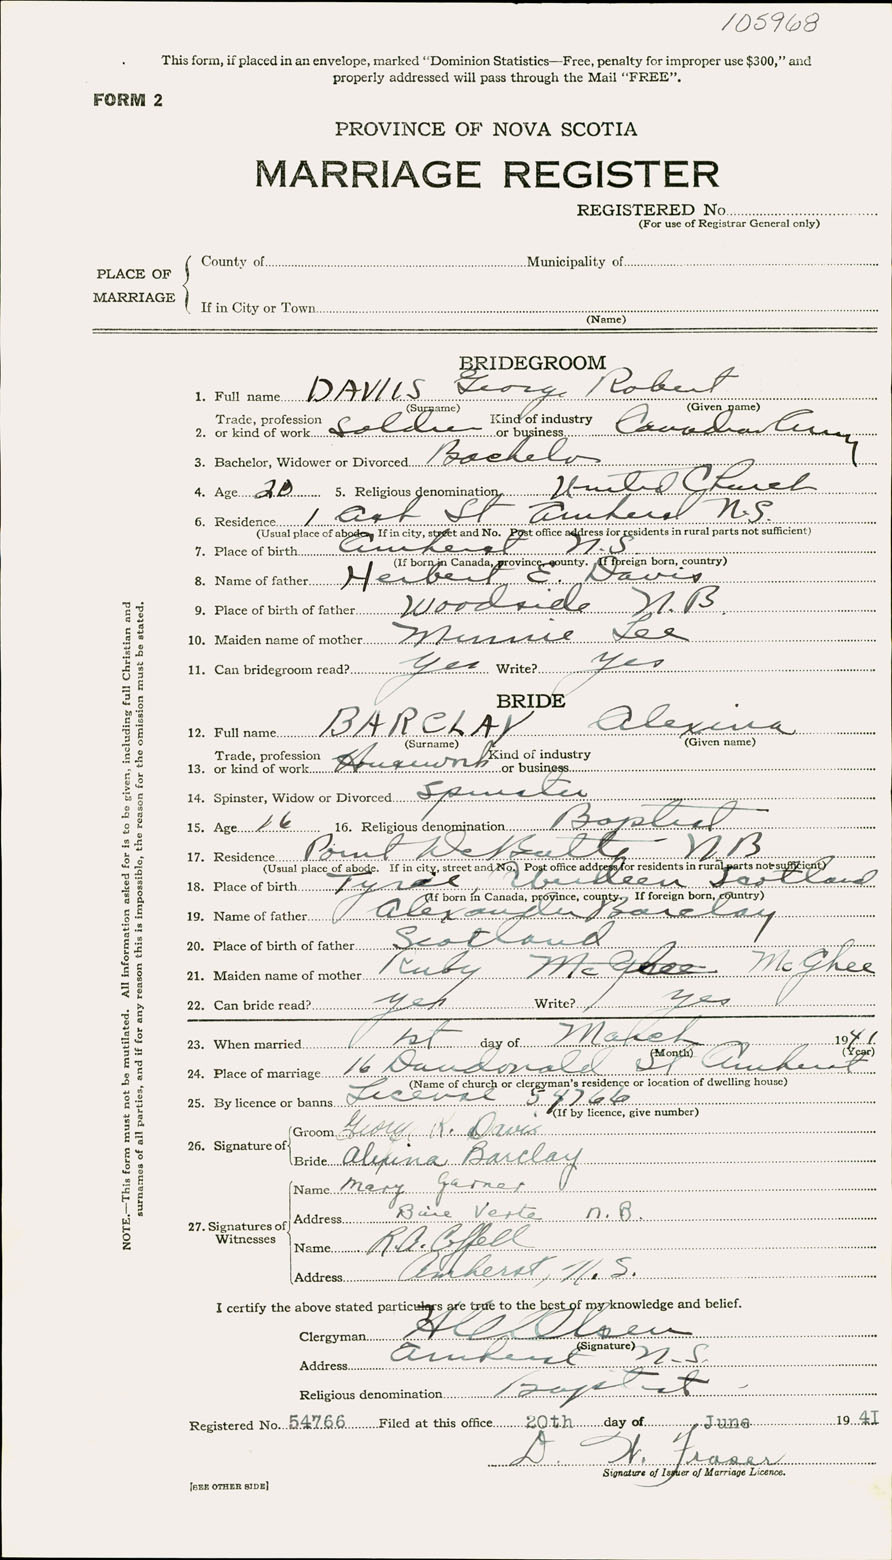 105968
This form, if placed in an envelope, marked "Dominion Statistics—Free, penalty for improper use $300," and
properly addressed will pass through the Mail "FREE".
FORM 2
PROVINCE OF NOVA SCOTIA
MARRIAGE REGISTER
REGISTERED No.
(For use of Registrar General only)
PLACE OF MARRIAGE
County of Municipality of
If in City or Town
(Name)
BRIDEGROOM
1. Full name DAVIS George Robert
(Surname) (Given name)
2. Trade, profession or kind of work Soldier Kind of industry or business Canadian Army
3. Bachelor, Widower or Divorced Bachelor
4. Age 20 5. Religious denomination United Church
6. Residence 1 St Amherst N.S.
(Usual place of abode. If in city, street and No. Post office address for residents in rural parts not sufficient)
7. Place of birth Amherst N.S.
(If born in Canada, province, county. If foreign born, country)
8. Name of father Herbert E. Davis
9. Place of birth of father Woodside N.B.
10. Maiden name of mother Minnie Lee
11. Can bridegroom read? Yes Write? Yes
BRIDE
12. Full name BARCLAY Alexina
(Surname) (Given name)
13. Trade, profession or kind of work Housework Kind of industry or business
14. Spinster, Widow or Divorced Spinster
15. Age 16 16. Religious denomination Baptist
17. Residence Point De Bute N.B
(Usual place of abode. If in city, street and No. Post office address for residents in rural parts not sufficient)
18. Place of birth Scotland
(If born in Canada, province, county. If foreign born, country)
19. Name of father Alexander Barclay
20. Place of birth of father Scotland
21. Maiden name of mother Ruby McGhee McGhee
22. Can bride read? yes Write? yes
23. When married 1st day of March 1941
(Month) (Year)
24. Place of marriage 16 Dundonald St Amherst
(Name of church or clergyman's residence or location of dwelling house)
25. By licence or banns License 54766
(If by licence, give number)
26. Signature of
Groom George R. Davis
Bride Alexina Barclay
27. Signatures of Witnesses
Name Mary Garner
Address Baie Verte N.B.
Name R.A.
Address Amherst, N.S.
I certify the above stated particulars are true to the best of my knowledge and belief.
Clergyman Olsen
(Signature)
Address Amherst N.S.
Religious denomination Baptist
Registered No. 54766 Filed at this office 20th day of June 1941
D. W. Fraser
Signature of Issuer of Marriage Licence.
[SEE OTHER SIDE]
NOTE.—This form must not be mutilated. All information asked for is to be given, including full Christian and
surnames of all parties, and if for any reason this is impossible, the reason for the omission must be stated.